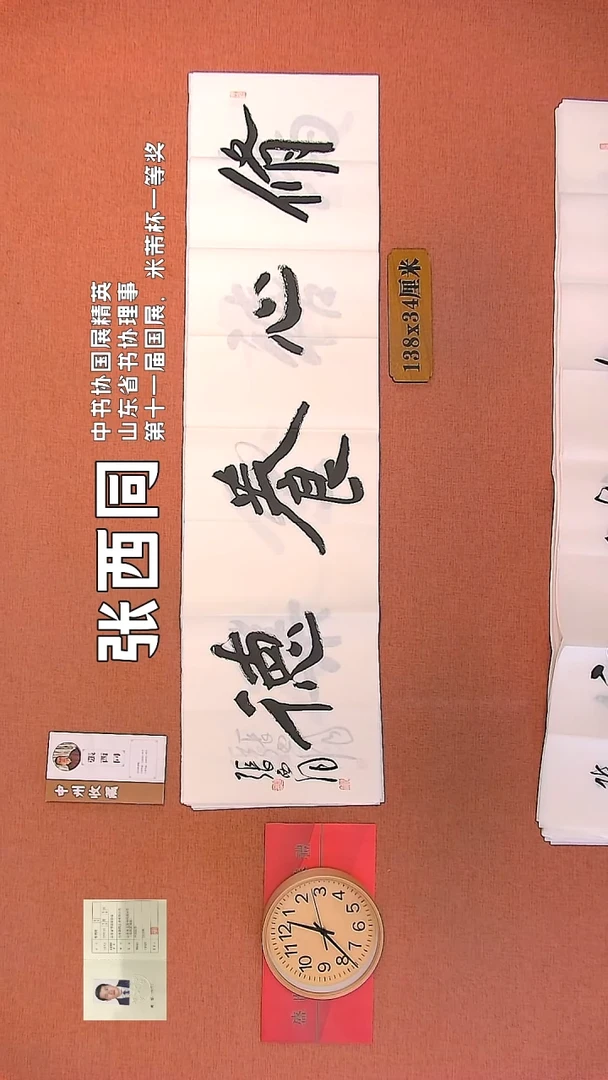 张西同
中书协国展精英
山东省书协理事
第十一届国展、米芾杯一等奖
脩心養德
張西同
138x34厘米
張西同
中州收藏
12
1
2
3
4
5
6
7
8
9
10
11